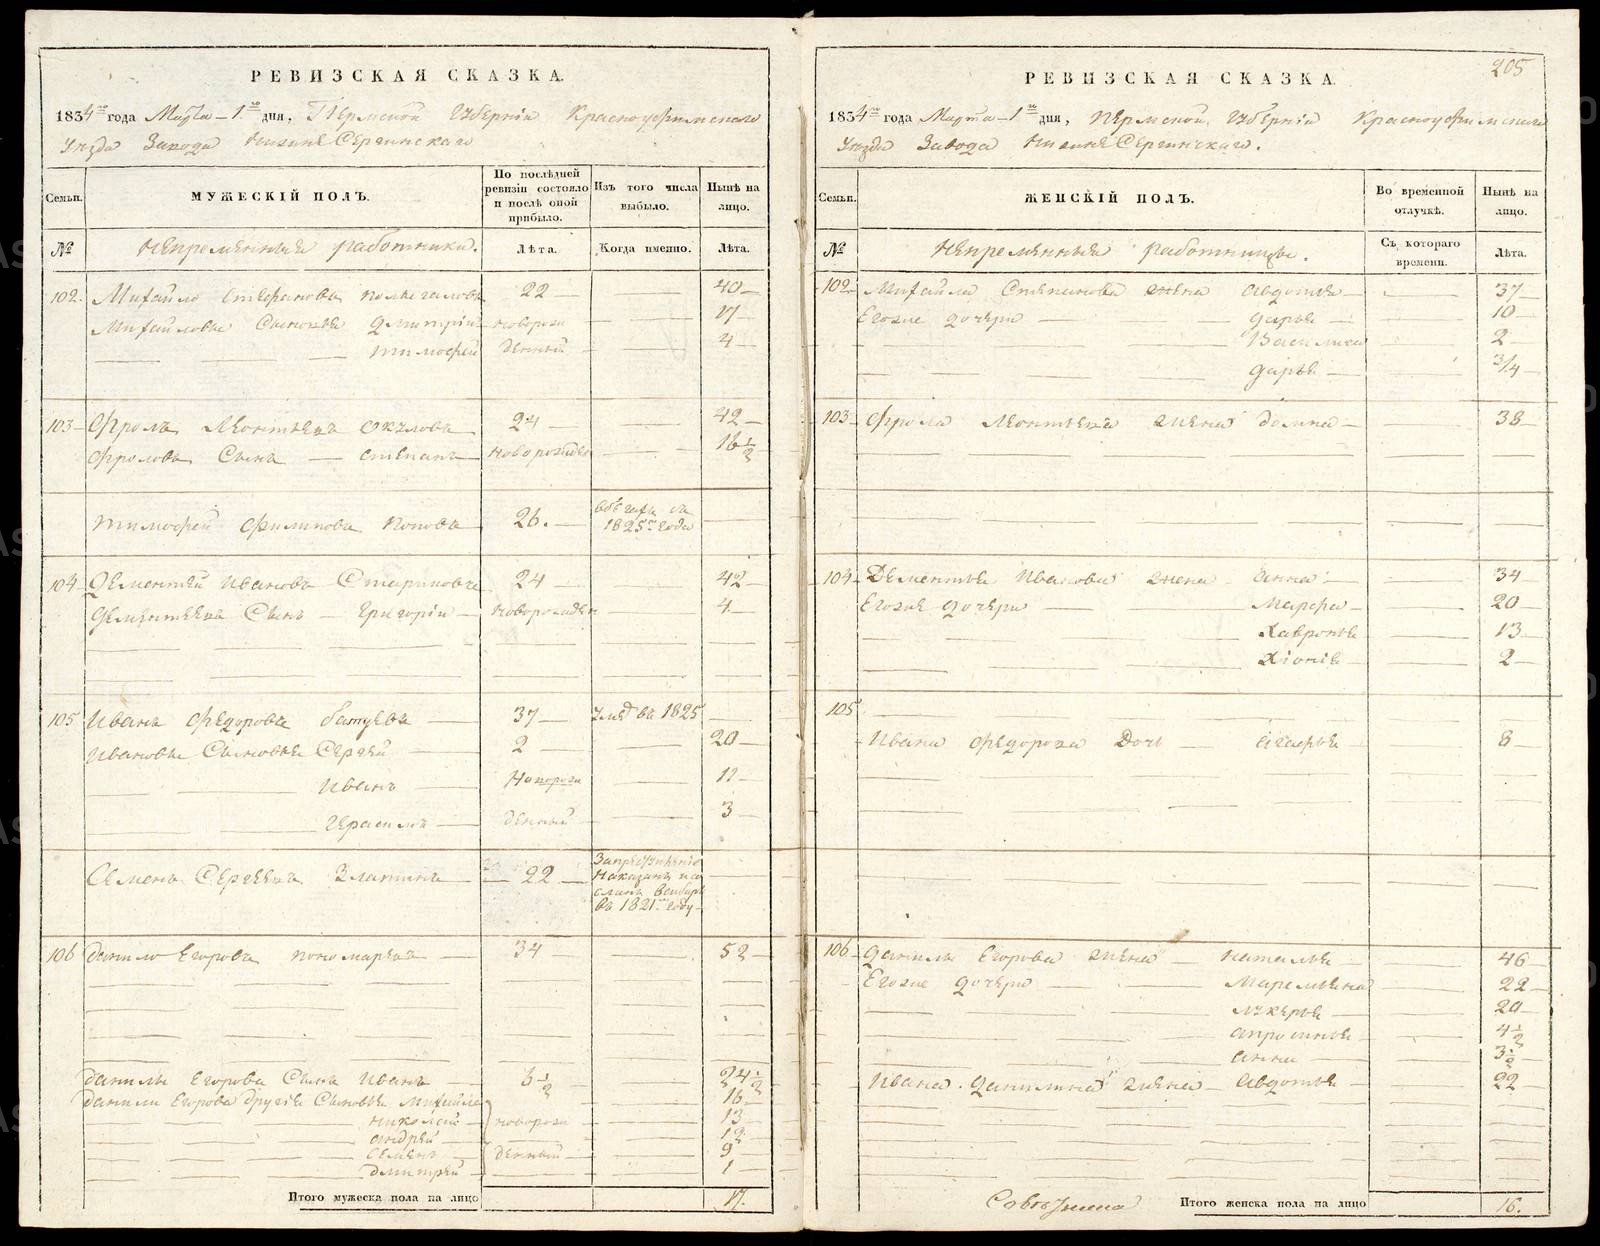 РЕВИЗСКАЯ СКАЗКА.
1834го года Марта 1го дня, Пермской Губерніи Красноуфимскаго
Уѣзда Завода НижнеСергинскаго
Семьи.
МУЖЕСКІЙ ПОЛЪ.
По послѣдней ревизіи состояло и послѣ оной прибыло.
Изъ того числа выбыло.
Нынѣ на лицо.
№
Непремѣнныя работники.
Лѣта.
Когда именно.
Лѣта.
102. Михайло Степановъ 22 40
Михайловы Сыновья Дмитрій новорож 17
Тимофей денный 4
103 Фролъ Леонтьевъ 24 42
Фроловъ Сынъ Степанъ новорожден 16½
Тимофей Филиповъ Поповъ 26. 1825го года
104 Дементей Ивановъ 24 42
Дементьевъ Сынъ Григорій новорожден 4
105 Иванъ Федоровъ 37 въ 1825
Ивановы Сыновья Сергей 2 20
Иванъ 11
Герасимъ денный 3
Семенъ Сергеевъ Златинъ 22 Наказанъ и со
сланъ в сибирь
въ 1821м году
106 Данило Егоровъ Пономаревъ 34 52
Данилы Егорова Сынъ Иванъ 24½
Данилы Егорова другіе Сыновья Михайло 16
Николай новорож 13
Андрей 12
Семенъ денный 9
Дмитрей 1
Итого мужеска пола на лицо 17.
205
РЕВИЗСКАЯ СКАЗКА.
1834го года Марта 1го дня, Пермской Губерніи Красноуфимскаго
Уѣзда Завода НижнеСергинскаго.
Семьи.
ЖЕНСКІЙ ПОЛЪ.
Во временной отлучкѣ.
Нынѣ на лицо.
№
Непремѣнныя работницы.
Съ котораго времени.
Лѣта.
102 Михайла Степанова жена Авдотья 37
Егоже дочери Дарья 10
Василиса 2
Дарья 3/4
103 Фрола Леонтьева жена Домна 38
104 Дементья Иванова жена Анна 34
Егоже дочери Марфа 20
Хавронья 13
Хіонія 2
105
Ивана Федорова Дочь Агафья 8
106 Данилы Егорова жена Наталья 46
Егоже дочери Маремьяна 22
Лукерья 20
Апросинья 4½
Анна 3½
Ивана Данилина жена Авдотья 22
Итого женска пола на лицо 16.